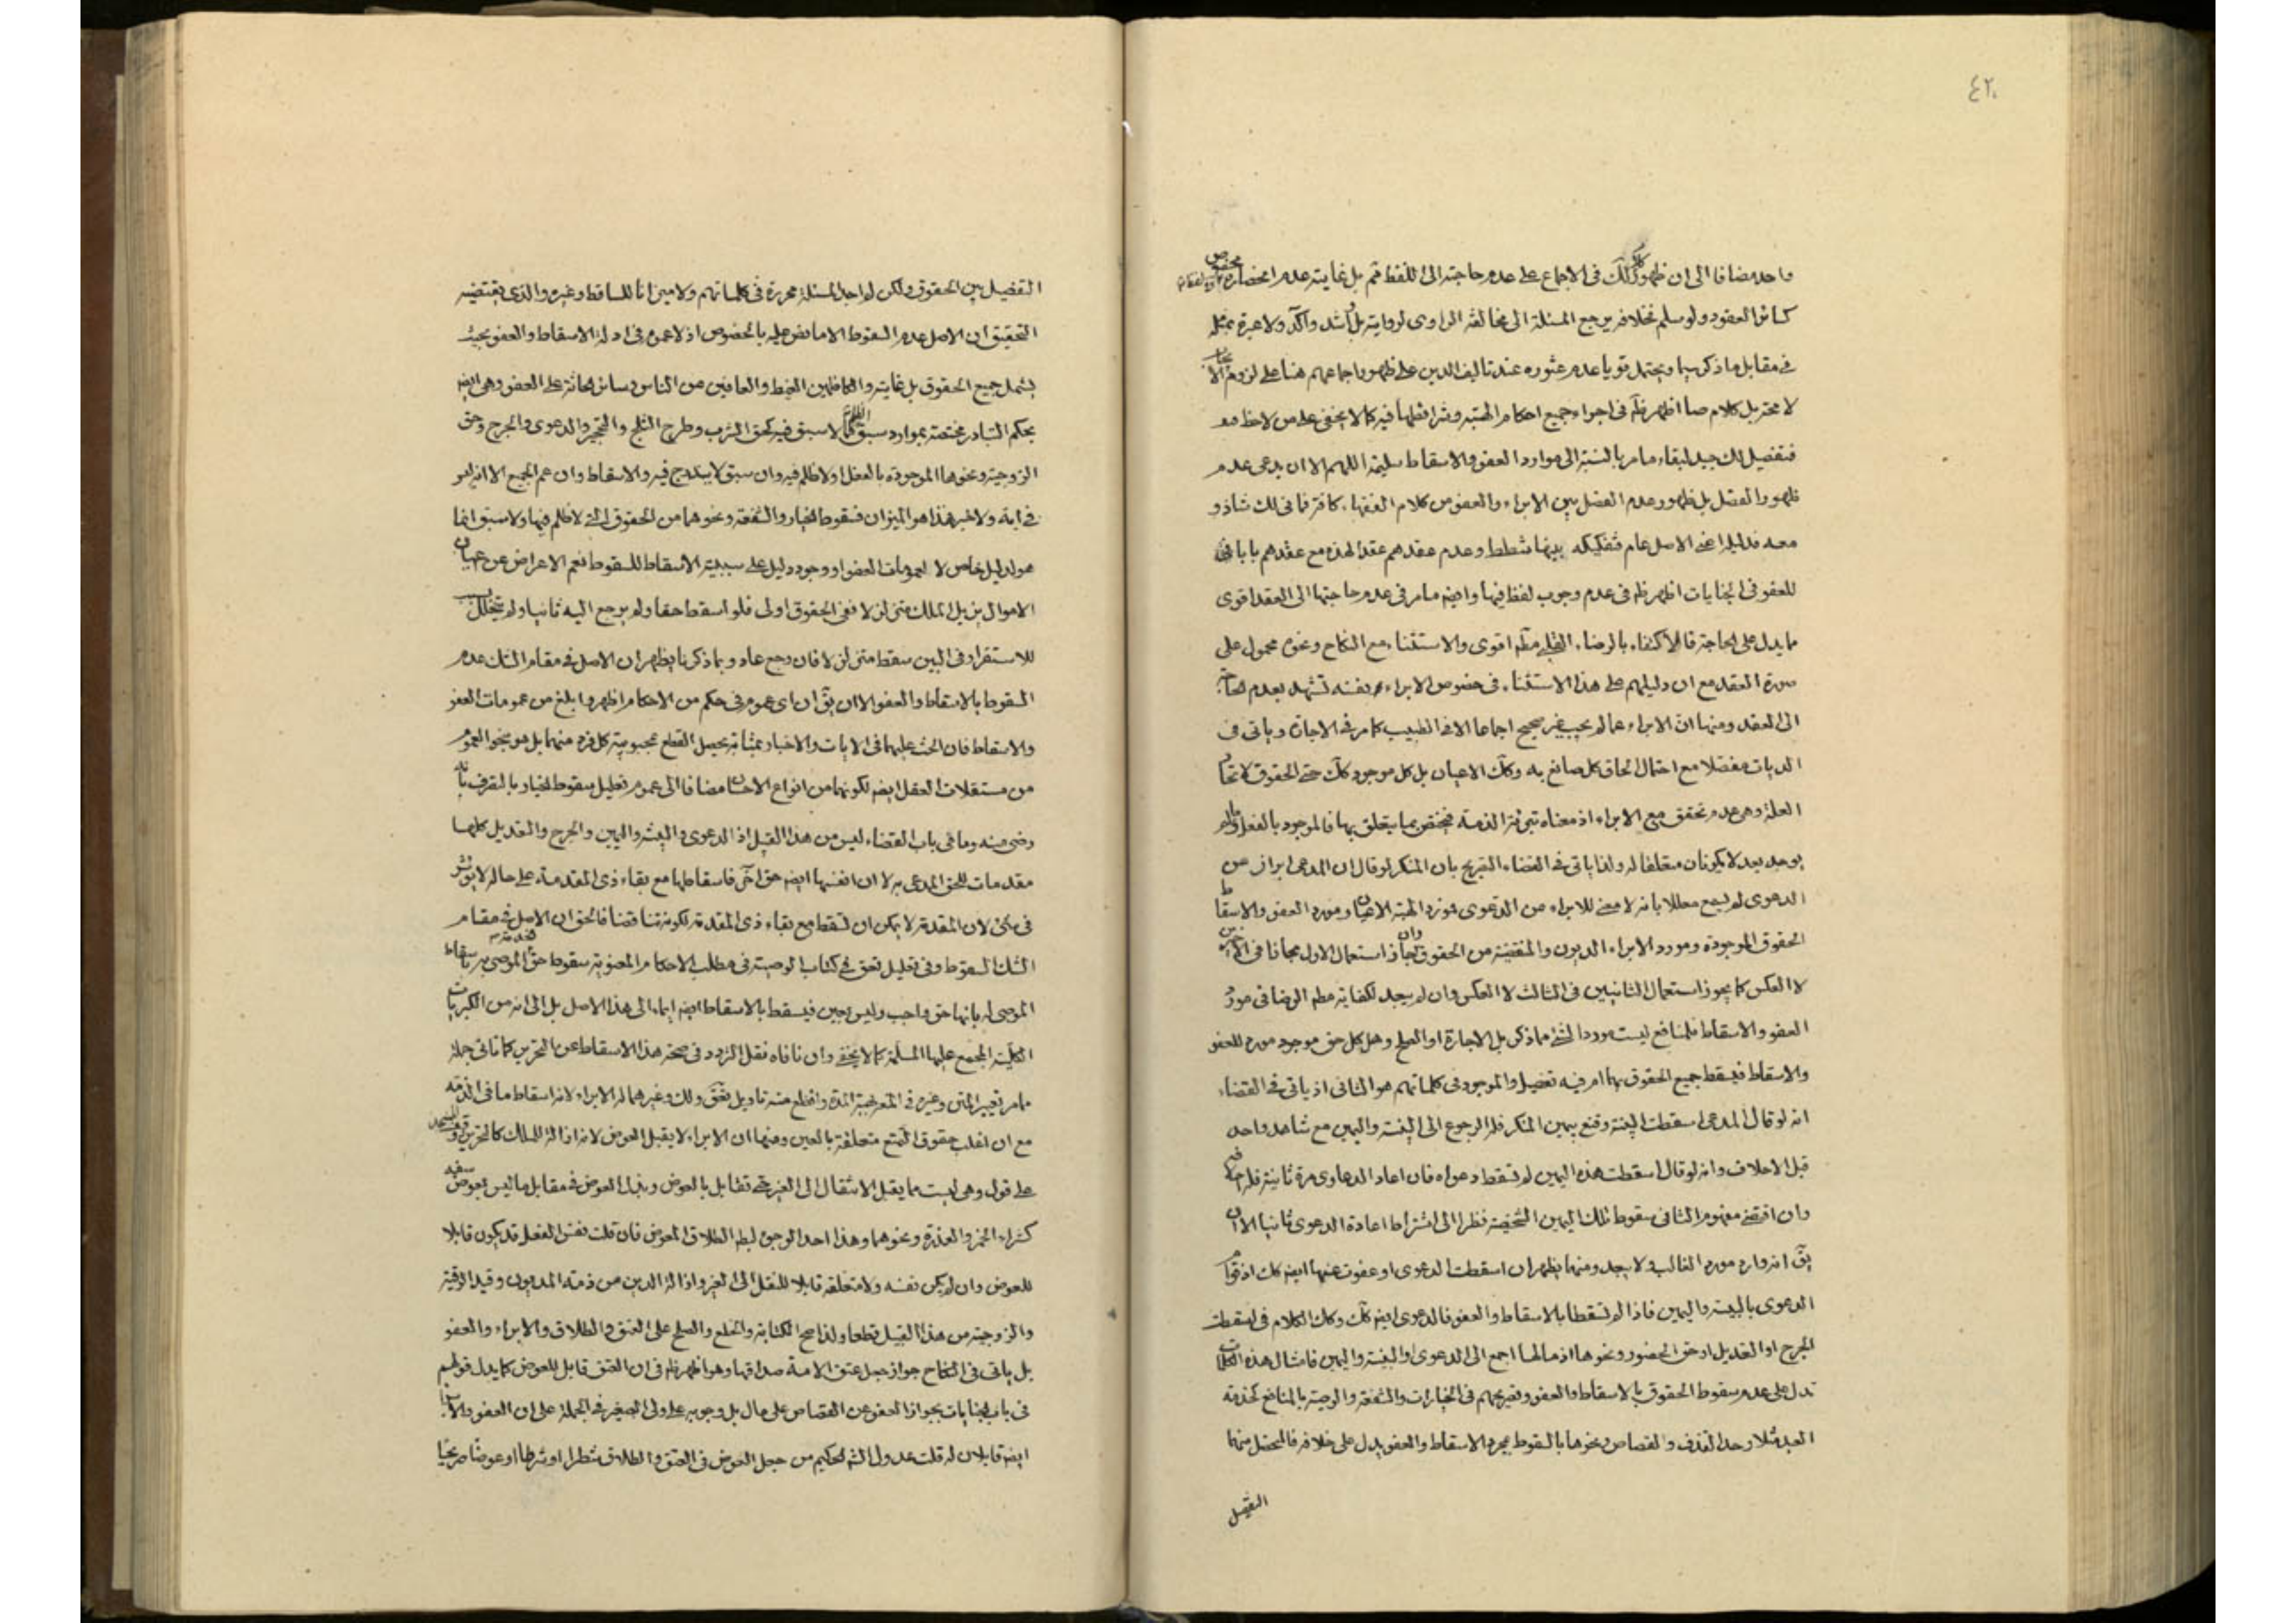 ٤٢٠
واحد مضافا الى ان ظهور كلك فى الاجماع على عدم حاجته الى اللفظ ثم بل غايته عدم انحصاره
كسائر العقود ولو سلم فخلافه يرجع المسئلة الى مخالفة الراوى لروايته بل اشد وآكد ولا عبرة بمثله
فى مقابل ما ذكر سيما ويحتمل قويا عدم عثوره عند تاليف الدين على ظهور اجماعهم هنا على لزوم
لا مختر بل كلام صا اظهر ظم فى اجراء جميع احكام الهبة وشرائطها فيه كما لا يخفى على من لاحظ
فتفصيل لك جيد لبقاء ما مر بالنسبة الى موارد العفو والاسقاط سليمة اللهم الا ان يدعى عدم
ظهور الفصل بل ظهور عدم الفصل بين الابراء والعفو من كلام الفقهاء كافة فما فى لك شاذ و
معه فدليلا غنى الاصل عام فتفكيكه بينهما شطط وعدم عقدهم عقدا لهذه مع عقدهم بابا
للعفو فى الجنايات اظهر ظم فى عدم وجوب لفظ فيها وايضه ما مر فى عدم حاجتها الى العقد اقوى
ما يدل على الحاجة فالاكتفاء بالرضاء مطم اقوى والاستثناء مع النكاح ونحوه محمول على
صورة العقد مع ان دليلهم على هذا الاستثناء فى خصوص الابراء بنفسه تشهد بعدم
الى العقد ومنها ان الابراء عما لم يجب غير صحيح اجماعا الا فى الطبيب كما مر فى الاجارة وياتى فى
الديات مفصلا مع احتمال الحاق كل صانع به وكك الاعيان بل كل موجود كك حتى الحقوق لاتحاد
العلة وهى عدم تحقق مع الابراء اذ معناه تبرئة الذمة فيختص بما يتعلق بها فالموجود بالفعل وما لم
يوجد بعد لا يكونان متعلقا له ولذا ياتى فى القضاء التصريح بان المنكر لو قال ان المدعى ابرانى عن
الدعوى لم يسمع معللا بانه لا معنى للابراء من الدعوى فمورد الهبة الاعيان ومورد العفو والاسقاط
الحقوق الموجودة ومورد الابراء الديون والمنقضية من الحقوق وان جاز استعمال الاول مجازا فى الاخيرين
لا العكس كما يجوز استعمال الثانيين فى الثالث لا العكس وان لم يبعد لكفاية مطم الرضا فى مورد
العفو والاسقاط فلمنافع ليست موردا لشئ مما ذكر بل الاجارة او الصلح وهل كل حق موجود مورد للعفو
والاسقاط فيسقط جميع الحقوق بهما ام فيه تفصيل والموجود فى كلماتهم هو الثانى اذ ياتى فى القضاء
انه لو قال المدعى اسقطت البينة وقنع بيمين المنكر فله الرجوع الى البينة واليمين مع شاهد واحد
قبل الاحلاف وانه لو قال اسقطت هذه اليمين لم تسقط دعواه فان اعاد الدعاوى مرة ثانية فله
وان اقتضى مفهوم الثانى سقوط تلك اليمين الشخصية نظرا الى اشتراط اعادة الدعوى ثانيا الا ان
يق انه وارد مورد الغالب ولا يبعد ومنهما يظهر ان اسقطت الدعوى او عفوت عنها ايضه كك اذ قوام
الدعوى بالبينة واليمين فاذا لم تسقطا بالاسقاط والعفو فالدعوى ايضه كك وكك الكلام فى اسقطت
الجرح او التعديل او حق الحضور ونحوها اذ مالها اجمع الى الدعوى او البينة واليمين فامثال هذه الكلمات
تدل على عدم سقوط الحقوق بالاسقاط والعفو وتصريحهم فى الخيارات والشفعة والوصية بالمنافع كخدمة
العبد مثلا وحد القذف والقصاص ونحوها بالسقوط بمجرد الاسقاط والعفو يدل على خلافه فالمحصل منهما
التفصيل
التفصيل بين الحقوق ولكن لم اجد المسئلة محررة فى كلماتهم ولا ميزانا للساقط وغيره والذى يقتضيه
التحقيق ان الاصل عدم السقوط الا ما نص عليه بالخصوص اذ لا عموم فى ادلة الاسقاط والعفو بحيث
يشمل جميع الحقوق بل غايته والكاظمين الغيظ والعافين عن الناس وسائر الحاثة على العفو وهى ايضه
بحكم التبادر مختصة بموارد سبق الظلم فما لا سبق فيه كحق الشرب وطرح الثلج والتحجير والدعوى والجرح وحق
الزوجية ونحوها الموجودة بالفعل اولا ظلم فيه وان سبق لا يندرج فيه والاسقاط وان عم الجميع الا انه ليس
فى اية ولا خبر هذا هو الميزان فسقوط الخيار والشفعة ونحوهما من الحقوق التى لا ظلم فيها ولا سبق انما
هو لدليل خاص لا لعمومات العفو او وجود دليل على سببية الاسقاط للسقوط نعم الاعراض عن اعيان
الاموال يزيل الملك متزلزلا ففى الحقوق اولى فلو اسقط حقا ولم يرجع اليه ثانيا ولم يتخلل
للاستقرار فى البين سقط متزلزلا فان رجع عاد وبما ذكرنا يظهر ان الاصل فى مقام الشك عدم
السقوط بالاسقاط والعفو الا ان يق ان اى عموم فى حكم من الاحكام اظهر وابلغ من عمومات العفو
والاسقاط فان الحث عليهما فى الايات والاخبار بمثابة يحصل القطع بمحبوبية كل فرد منهما بل هو بنحو العموم
من مستقلات العقل ايضه لكونهما من انواع الاحسان مضافا الى عموم تعليل سقوط الخيار بالتصرف بانه
رضى منه وما فى باب القضاء ليس من هذا القبيل اذ الدعوى والبينة واليمين والجرح والتعديل كلها
مقدمات للحق المدعى به لا ان انفسها ايضه حق اخر فاسقاطها مع بقاء ذى المقدمة على حاله لا يؤثر
فى شئ لان المقدمة لا يمكن ان تسقط مع بقاء ذى المقدمة لكونه تناقضا فالحق ان الاصل فى مقام
الشك السقوط وفى تعليل فى كتاب الوصية فى مطلب الاحكام المعنوية سقوط حق الموصى به باسقاط
الموصى له بانها حق واجب وليس بعين فيسقط بالاسقاط ايضه ايماء الى هذا الاصل بل الى انه من الكبريات
الكلية المجمع عليها المسلمة كما لا يخفى وان نافاه نقل التردد فى صحة هذا الاسقاط عن التحرير كما ياتى جملة
ما مر تغيير المتن وغيره فى المتعة بهبة المدة واقطع منه تاويل ولك وغيرهما له الابراء لانه اسقاط ما فى الذمة
مع ان اغلب حقوق التمتع متعلقة بالعين ومنها ان الابراء لا يقبل العوض لانه ازالة للملك كالتحرير
على قول وهى ليست مما يقبل الانتقال الى الغير حتى تقابل بالعوض وبذل العوض فى مقابل ما ليس بعوض سفه
كشراء الخمر والعذرة ونحوهما وهذا احد الوجوه لبط الطلاق المعوض فان قلت نفس الفعل قد يكون قابلا
للعوض وان لم يكن نفسه ولا متعلقه قابلا للنقل الى الغير وازالة الدين من ذمة المديون وقيد الرقية
والزوجية من هذا القبيل قطعا ولذا صح الكتابة والخلع والصلح على العتق والطلاق والابراء والعفو
بل ياتى فى النكاح جواز جعل عتق الامة صداقها وهو اظهر ظم فى ان العتق قابل للعوض كما يدل قولهم
فى باب الجنايات بجواز العفو عن القصاص على مال بل وجوبه على ولى الصغير فى الجملة على ان العفو والابراء
ايضه قابلان له قلت عدول الشه الحكيم من جعل العوض فى العتق والطلاق شطرا او شرطا او عوضا صريحا